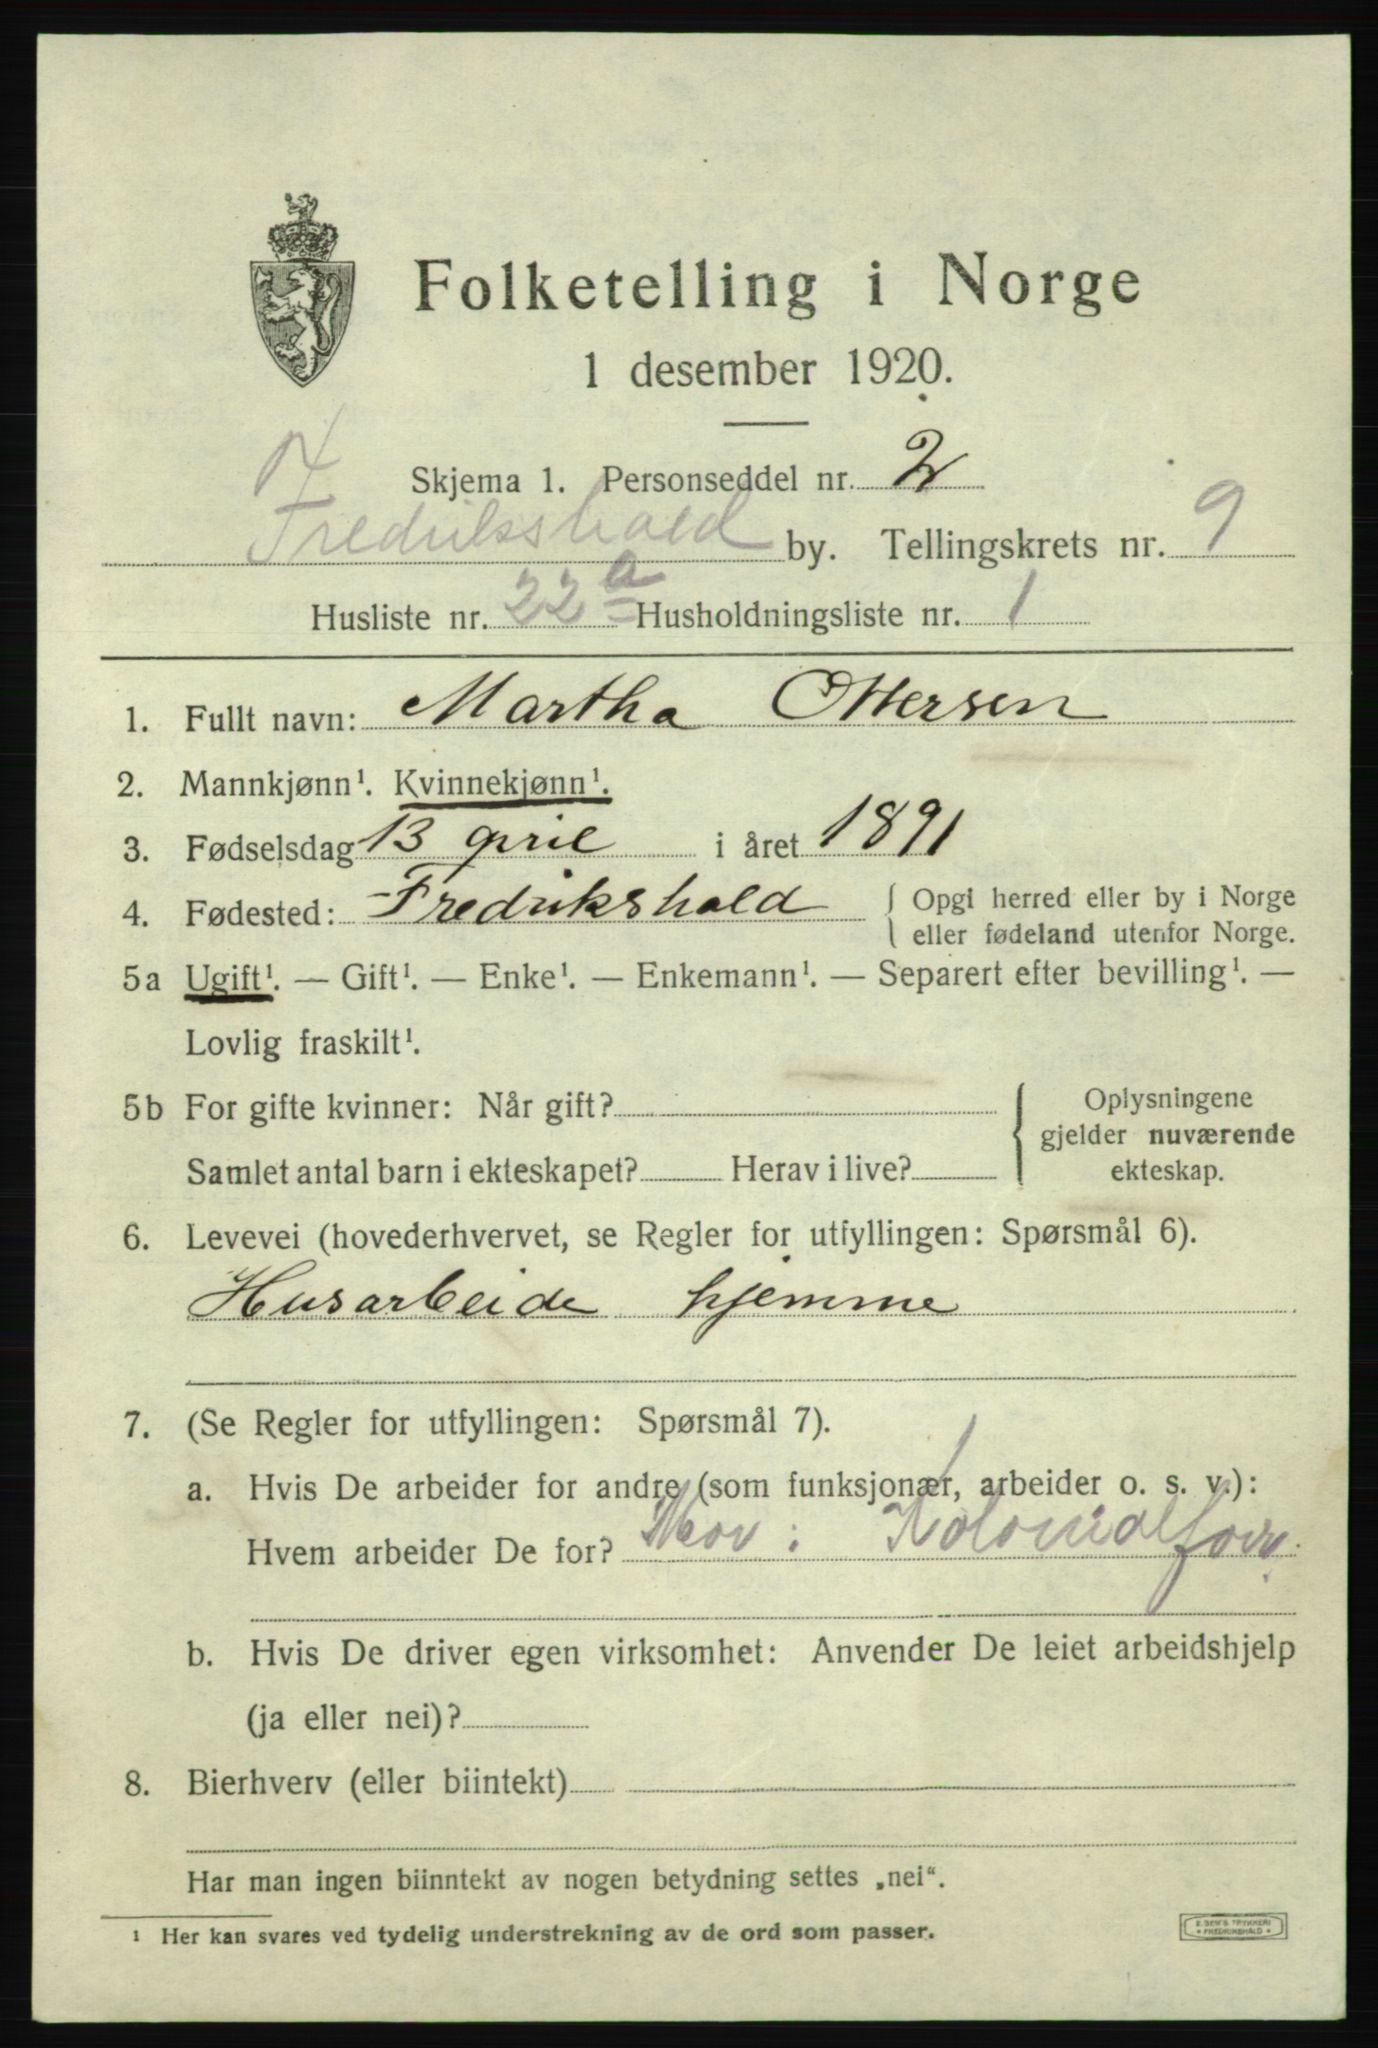 Folketelling i Norge
1 desember 1920.
Skjema 1. Personseddel nr. 2
Fredrikshald by. Tellingskrets nr. 9
Husliste nr. 22a Husholdningsliste nr. 1
1. Fullt navn: Martha Ottersen
2. Mannkjønn¹. Kvinnekjønn¹.
3. Fødselsdag 13 april i året 1891
4. Fødested: Fredrikshald { Opgi herred eller by i Norge
eller fødeland utenfor Norge.
5a Ugift¹. — Gift¹. — Enke¹. — Enkemann¹. — Separert efter bevilling¹. —
Lovlig fraskilt¹.
5b For gifte kvinner: Når gift?
Samlet antal barn i ekteskapet? Herav i live?
{ Oplysningene
gjelder nuværende
ekteskap.
6. Levevei (hovederhvervet, se Regler for utfyllingen: Spørsmål 6).
Husarbeide hjemme
7. (Se Regler for utfyllingen: Spørsmål 7).
a. Hvis De arbeider for andre (som funksjonær, arbeider o. s. v.):
Hvem arbeider De for? Mor: Kolonialforr.
b. Hvis De driver egen virksomhet: Anvender De leiet arbeidshjelp
(ja eller nei)?
8. Bierhverv (eller biintekt)
Har man ingen biinntekt av nogen betydning settes „nei“.
¹ Her kan svares ved tydelig understrekning av de ord som passer.
E. SEM'S TRYKKERI
• FREDRIKSHALD •